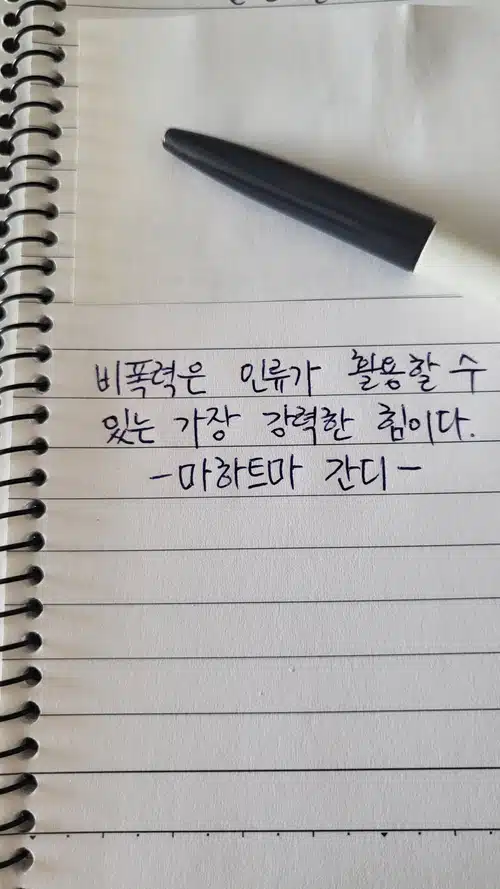 비폭력은 인류가 활용할 수
있는 가장 강력한 힘이다.
-마하트마 간디-